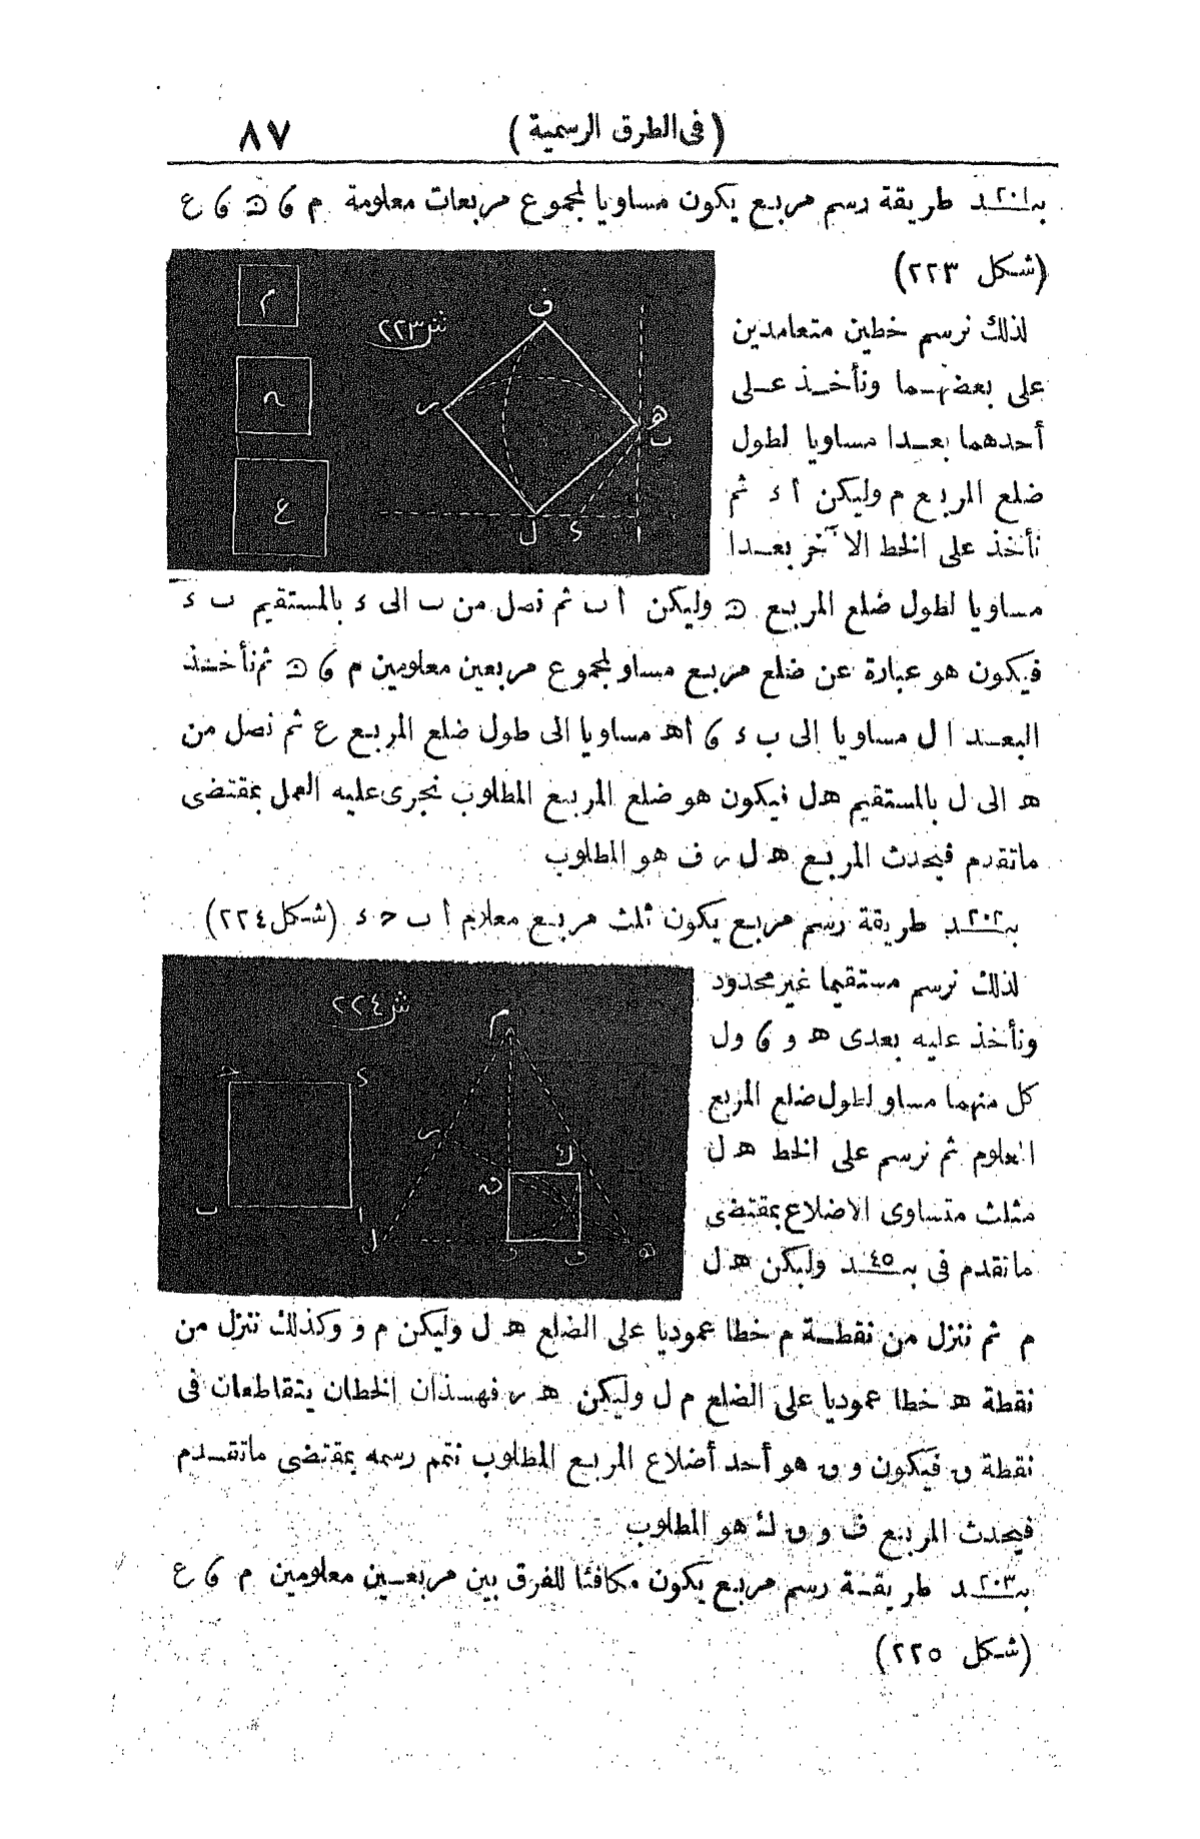 (فى الطرق الرسمية) ٨٧
بـ٢٠١ـند طريقة رسم مربع يكون مساويا لمجموع مربعات معلومة م و ن و ع
(شكل ٢٢٣)
ش ٢٢٣
م
ن
ع
ف
ر
هـ
ب
ل
ء
لذلك نرسم خطين متعامدين
على بعضهما ونأخذ على
أحدهما بعدا مساويا لطول
ضلع المربع م وليكن أ ء ثم
نأخذ على الخط الآخر بعدا
مساويا لطول ضلع المربع ن وليكن أ ب ثم نصل من ب الى ء بالمستقيم ب ء
فيكون هو عبارة عن ضلع مربع مساو لمجموع مربعين معلومين م و ن ثم نأخذ
البعد ا ل مساويا الى ب ء و أهـ مساويا الى طول ضلع المربع ع ثم نصل من
هـ الى ل بالمستقيم هـ ل فيكون هو ضلع المربع المطلوب نجرى عليه العمل بمقتضى
ماتقدم فيحدث المربع هـ ل ر ف هو المطلوب
بـ٢٠٢ـند طريقة رسم مربع يكون ثلث مربع معلوم أ ب ح ء (شكل ٢٢٤)
ش ٢٢٤
م
ح
ء
ر
ك
ن
ب
ا
ل
و
ف
هـ
لذلك نرسم مستقيما غير محدود
ونأخذ عليه بعدى هـ و و ول
كل منهما مساو لطول ضلع المربع
المعلوم ثم نرسم على الخط هـ ل
مثلث متساوى الاضلاع بمقتضى
ماتقدم فى بـ٤٥ـند وليكن هـ ل
م ثم ننزل من نقطة م خطا عموديا على الضلع هـ ل وليكن م و وكذلك ننزل من
نقطة هـ خطا عموديا على الضلع م ل وليكن هـ ر فهذان الخطان يتقاطعان فى
نقطة ن فيكون و ن هو أحد أضلاع المربع المطلوب نتمم رسمه بمقتضى ماتقدم
فيحدث المربع ف و ن ك هو المطلوب
بـ٢٠٣ـند طريقة رسم مربع يكون مكافئا للفرق بين مربعين معلومين م و ع
(شكل ٢٢٥)